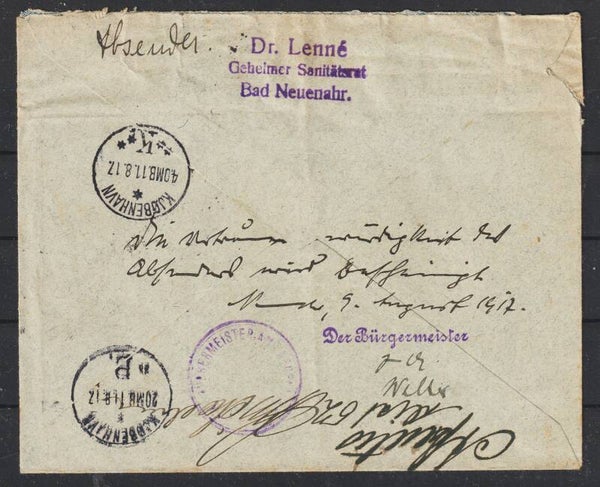 Absender.
Dr. Lenné
Geheimer Sanitätsrat
Bad Neuenahr.
KJØBENHAVN
4.OMB.11.8.17.
K.
Die Vertrauenswürdigkeit des
Absenders wird bescheinigt
9. August 1917.
Der Bürgermeister
BÜRGERMEISTERAMT
KJØBENHAVN
2OMB 11.8.17
P.